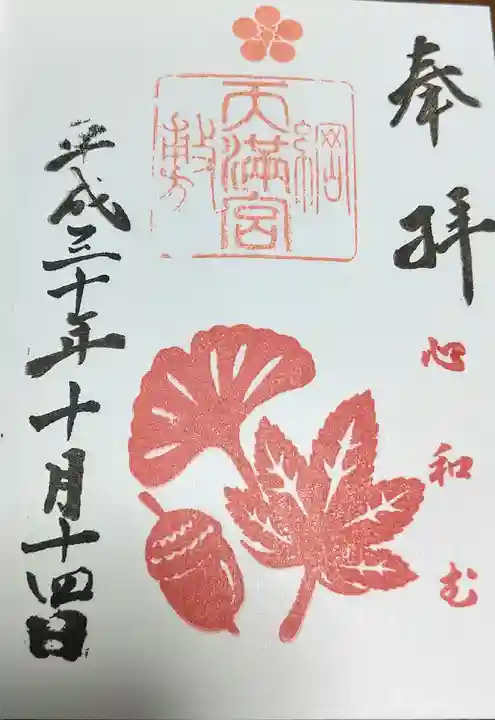 奉拝
心和む
綱敷天満宮
平成三十年十月十四日